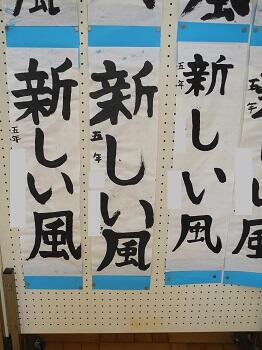 風
新しい風
五年
新しい風
五年
新しい風
五年
い風